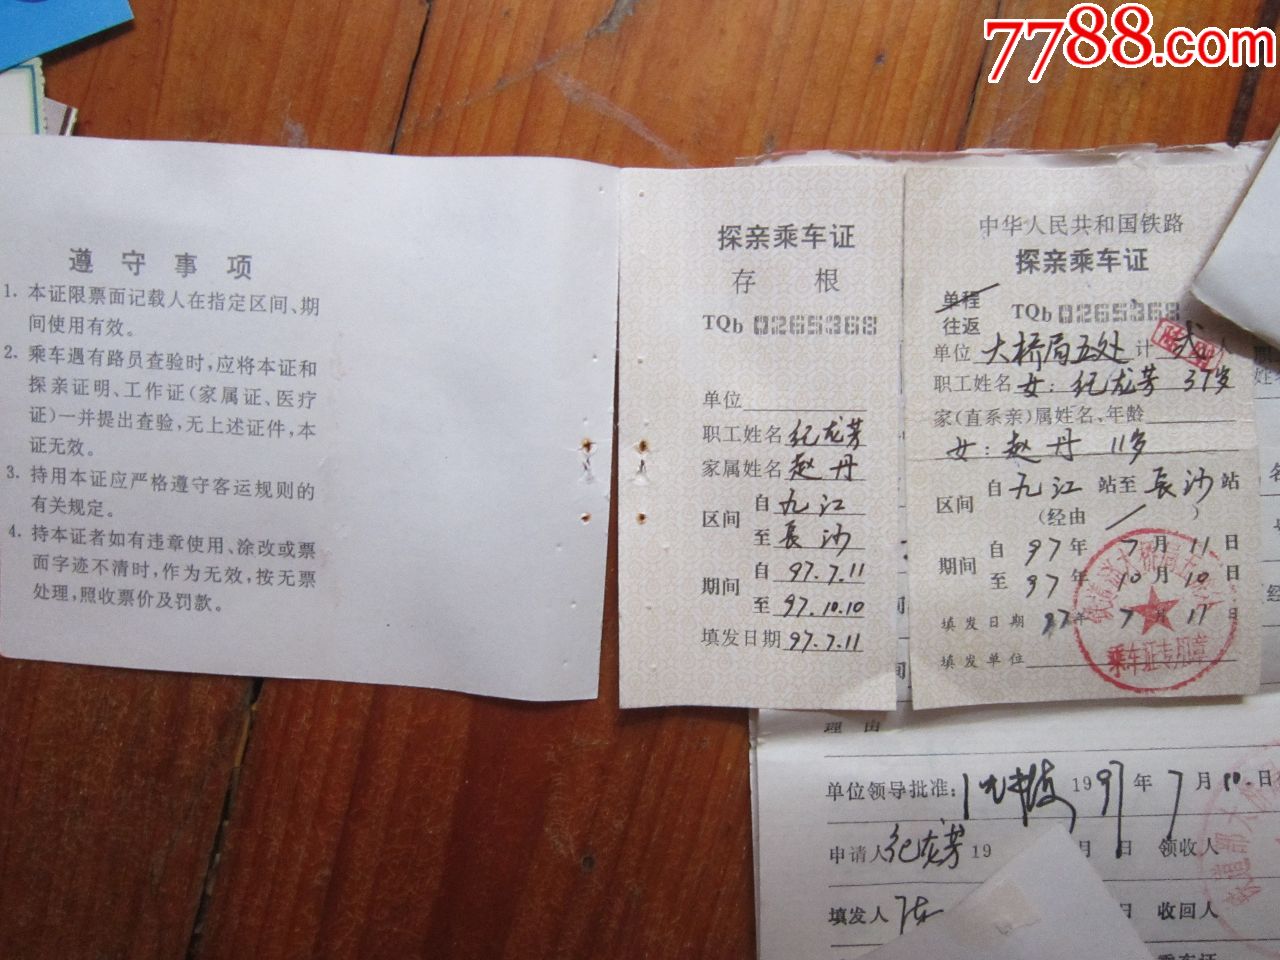 7788.com
遵守事项
1. 本证限票面记载人在指定区间、期
间使用有效。
2. 乘车遇有路员查验时,应将本证和
探亲证明、工作证(家属证、医疗
证)一并提出查验,无上述证件,本
证无效。
3. 持用本证应严格遵守客运规则的
有关规定。
4. 持本证者如有违章使用、涂改或票
面字迹不清时,作为无效,按无票
处理,照收票价及罚款。
探亲乘车证
存根
TQb 0265368
单位
职工姓名 纪龙芳
家属姓名 赵丹
区间 自 九江
至 長沙
期间 自 97.7.11
至 97.10.10
填发日期 97.7.11
中华人民共和国铁路
探亲乘车证
单程
往返
TQb 0265368
单位 大桥局五处 计 人
职工姓名 女:纪龙芳 37岁
家(直系亲)属姓名、年龄
女:赵丹 11岁
区间 自 九江 站至 長沙 站
(经由 / )
期间 自 97年 7月 11日
至 97年 10月 10日
填发日期 97年 7月 11日
填发单位
乘车证专用章
理由
单位领导批准: 1997年7月10日
申请人 纪龙芳 19 月 日 领收人
填发人 日 收回人
乘车证